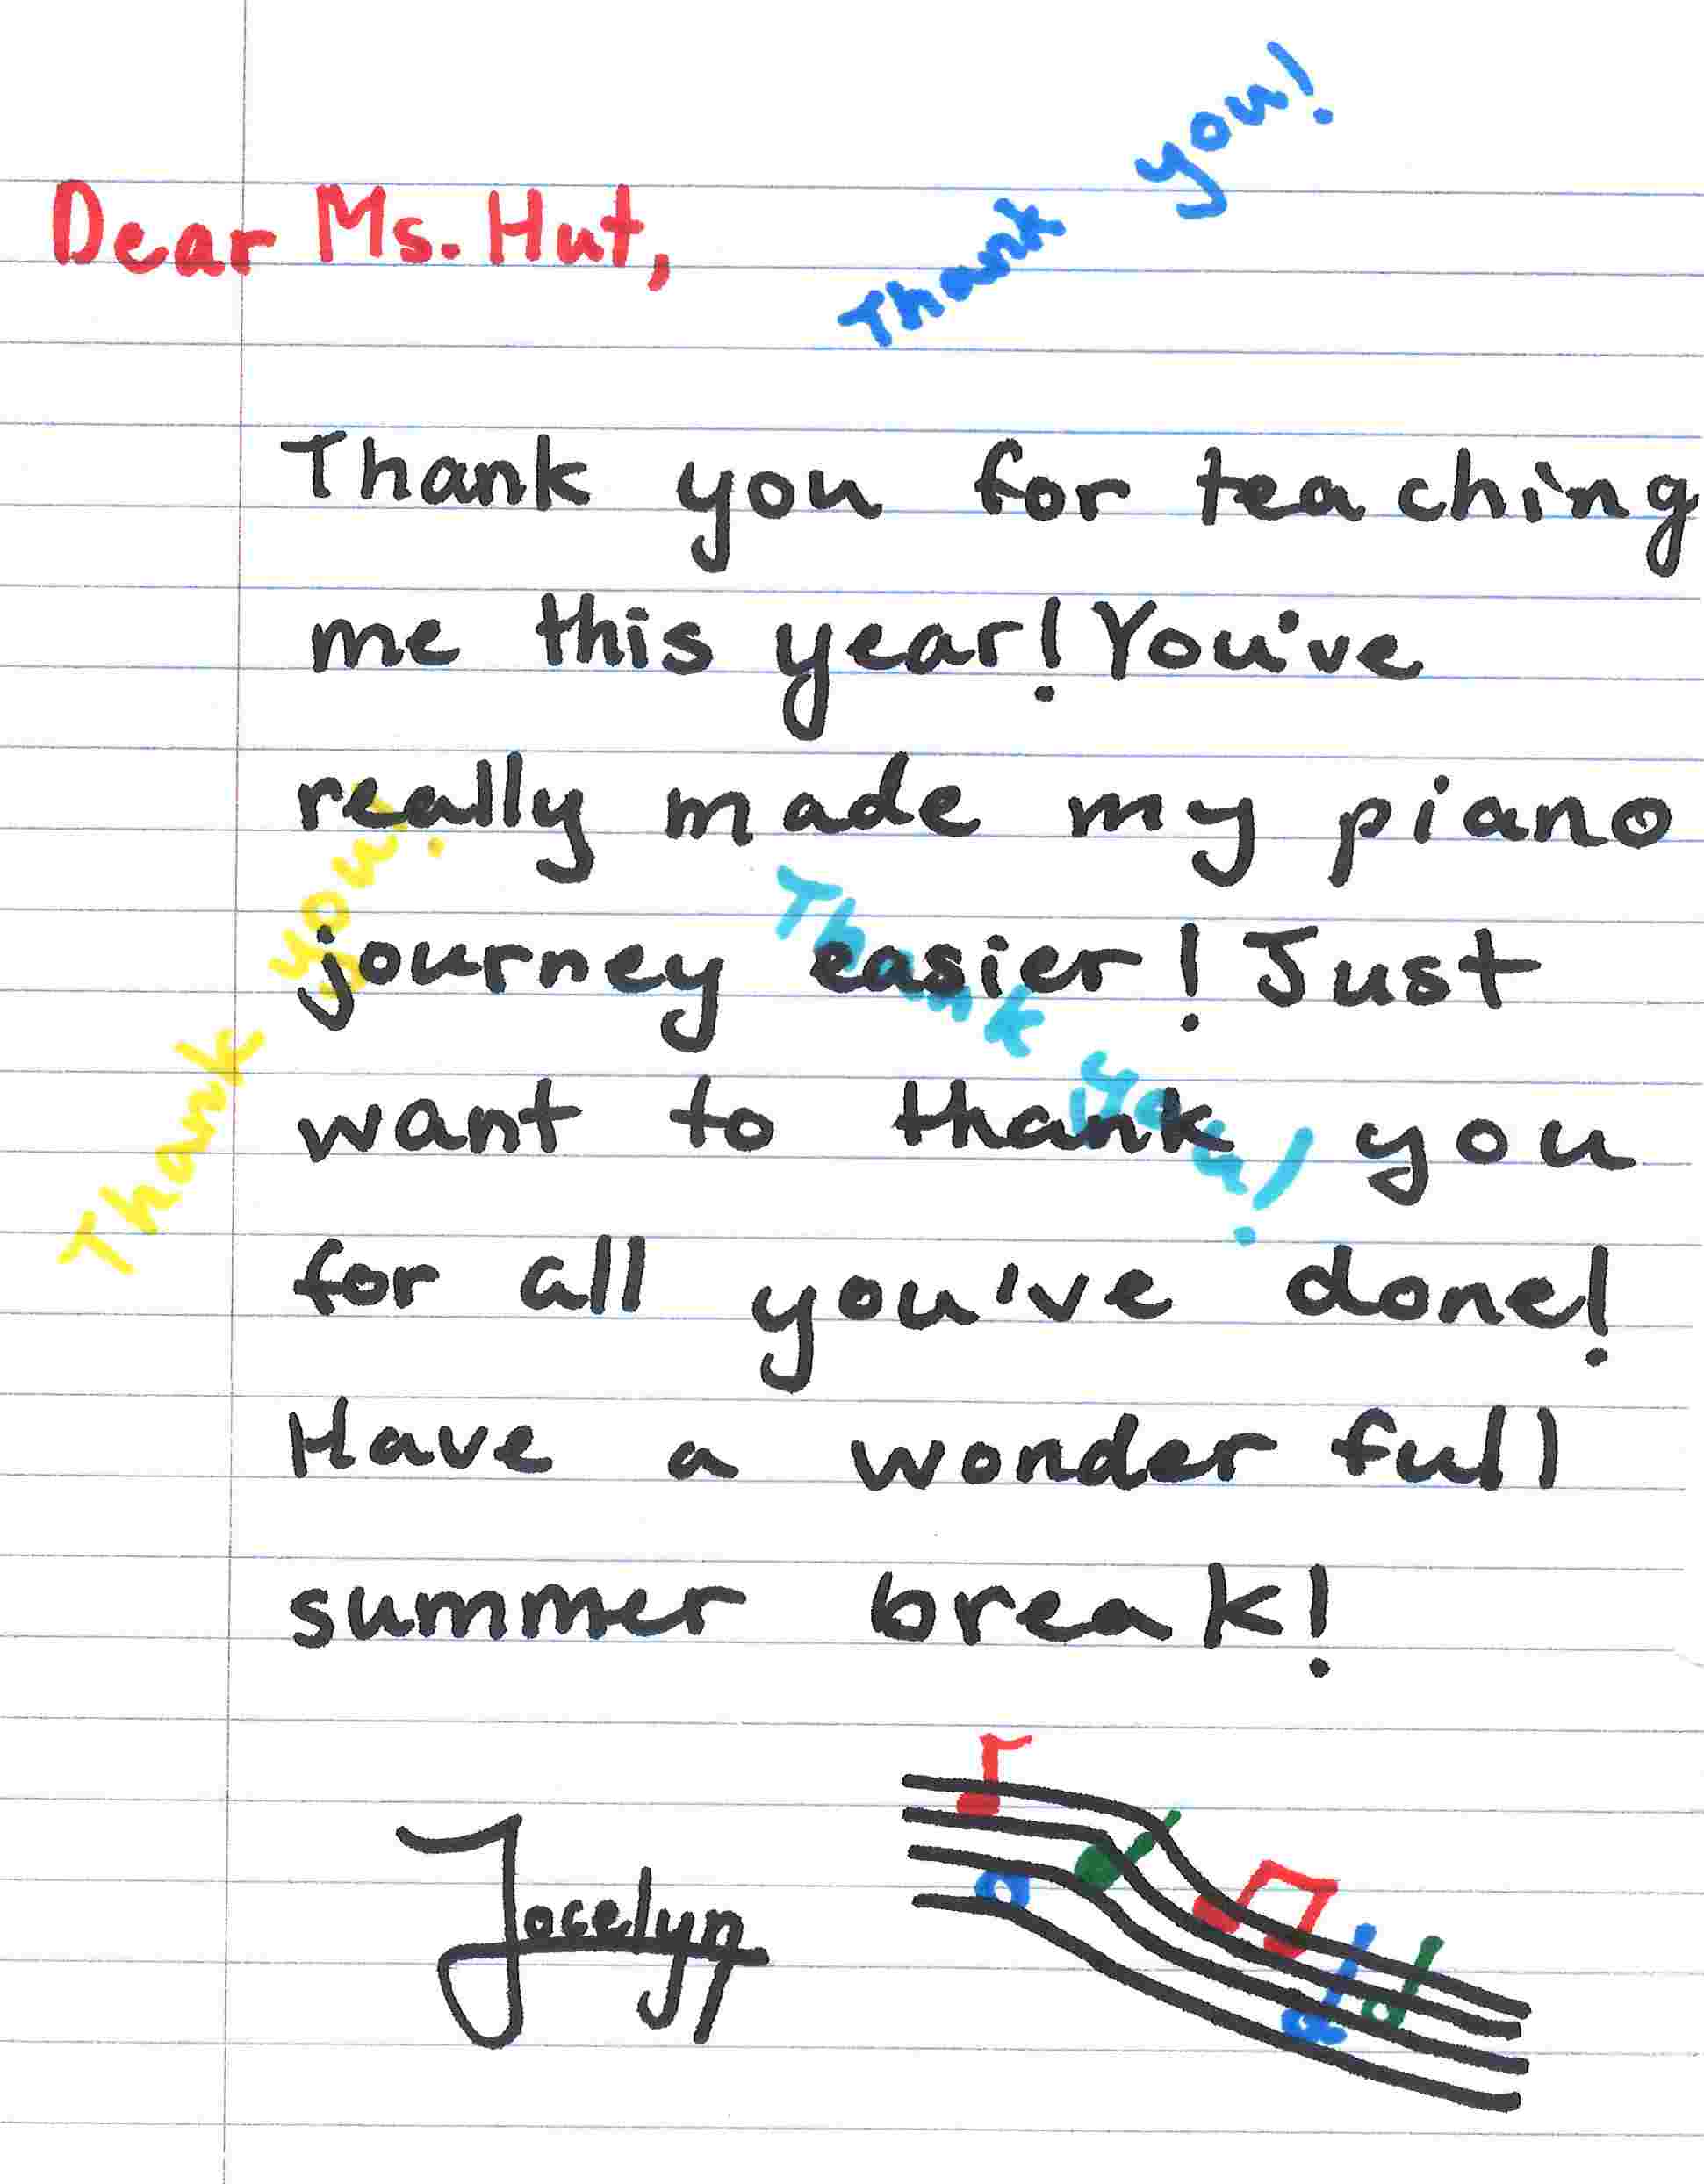 Thank you!
Dear Ms. Hut,
Thank you for teaching
me this year! You've
really made my piano
Thank you!
journey easier! Just
Thank you!
want to thank you
for all you've done!
Have a wonder full
summer break!
Jocelyn